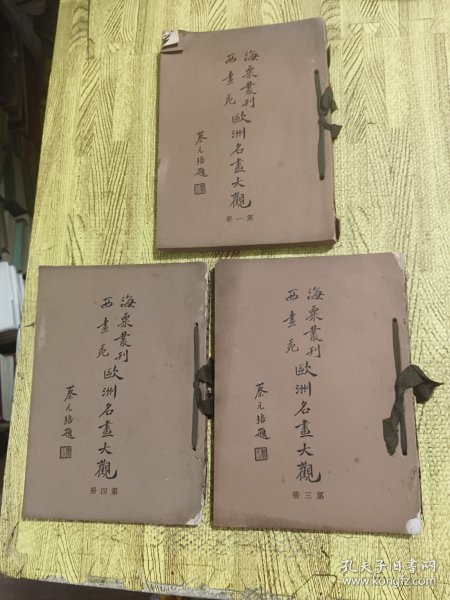 海粟叢刊
西畫苑
歐洲名畫大觀
蔡元培題
第一册
海粟叢刊
西畫苑
歐洲名畫大觀
蔡元培題
第四册
海粟叢刊
西畫苑
歐洲名畫大觀
蔡元培題
第三册
孔夫子旧书网
www.kongfz.com